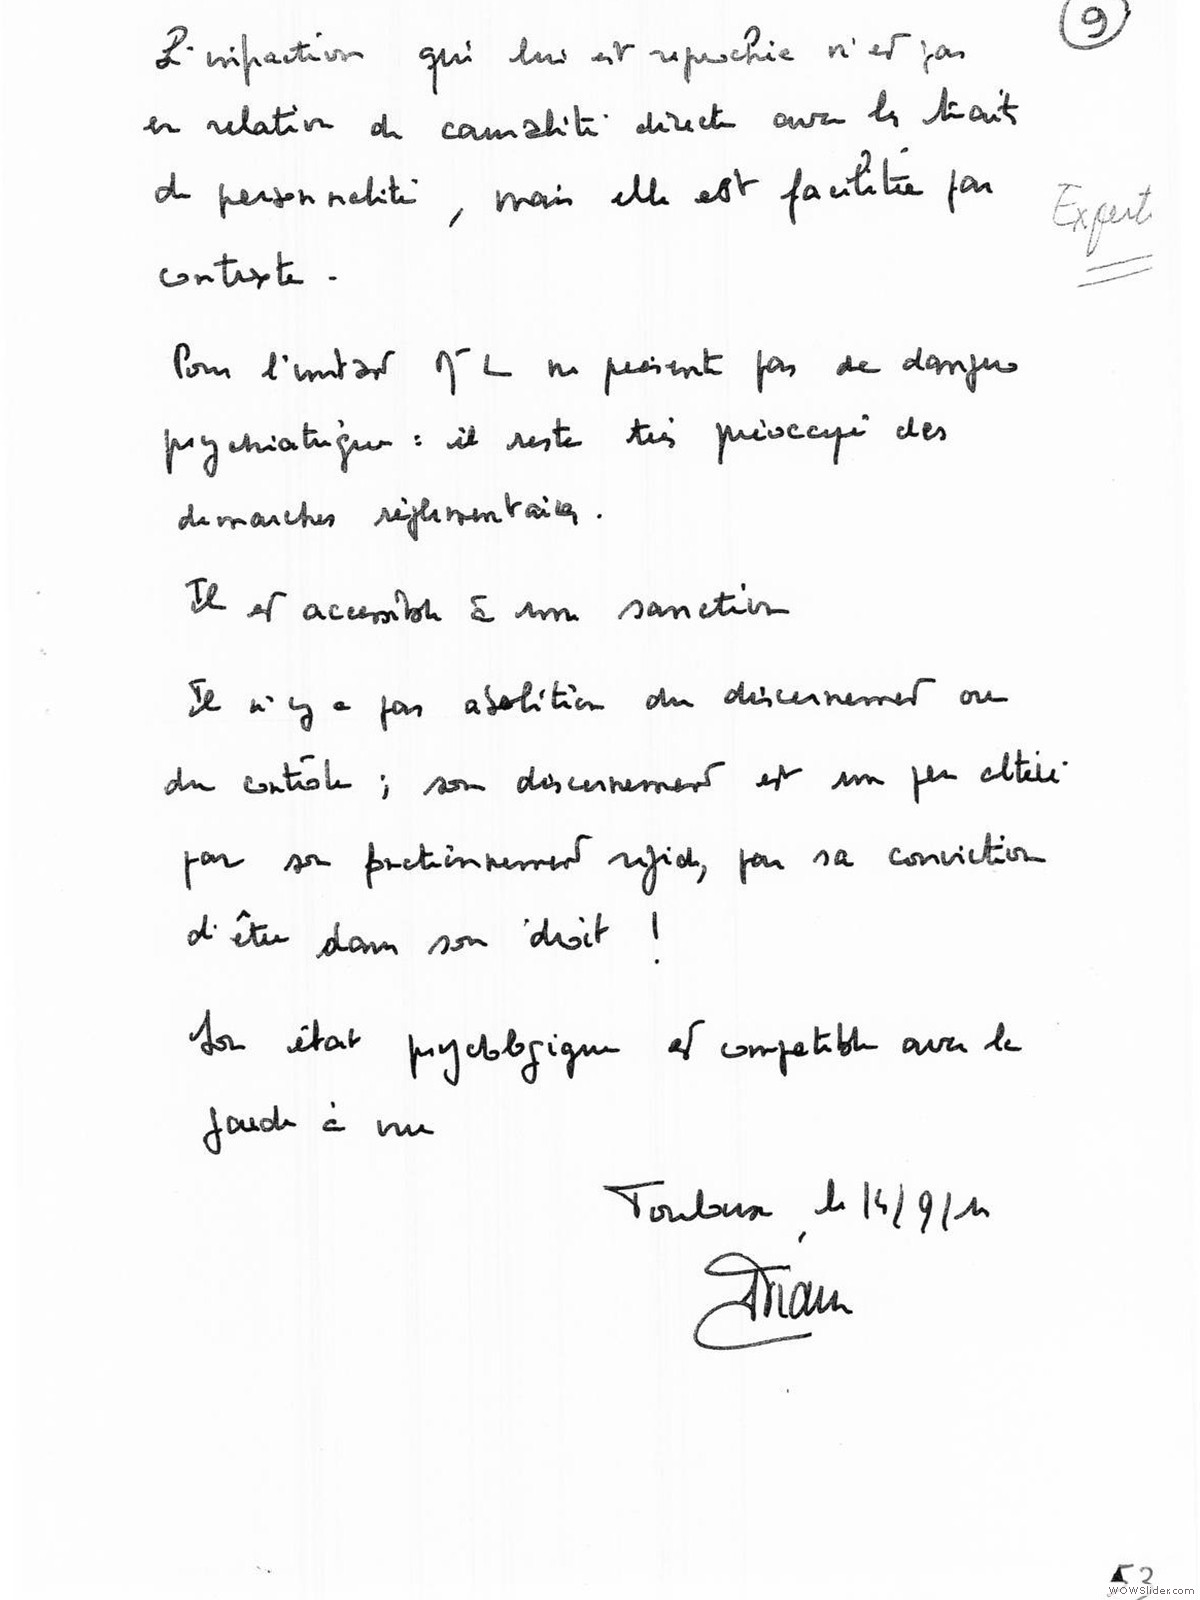 9
L'infraction qui lui est reprochée n'est pas
en relation de causalité directe avec les traits
de personnalité, mais elle est facilitée par
contexte.
Expert
Pour l'instant M L ne présente pas de danger
psychiatrique : il reste très préoccupé des
demarches réglementaires.
Il est accessible à une sanction
Il n'y a pas abolition du discernement ou
du contrôle ; son discernement est un peu altéré
par son fonctionnement rigide, par sa conviction
d'être dans son droit !
Son état psychologique est compatible avec la
garde à vue
Toulouse, le 14/9/
53
WOWSlider.com